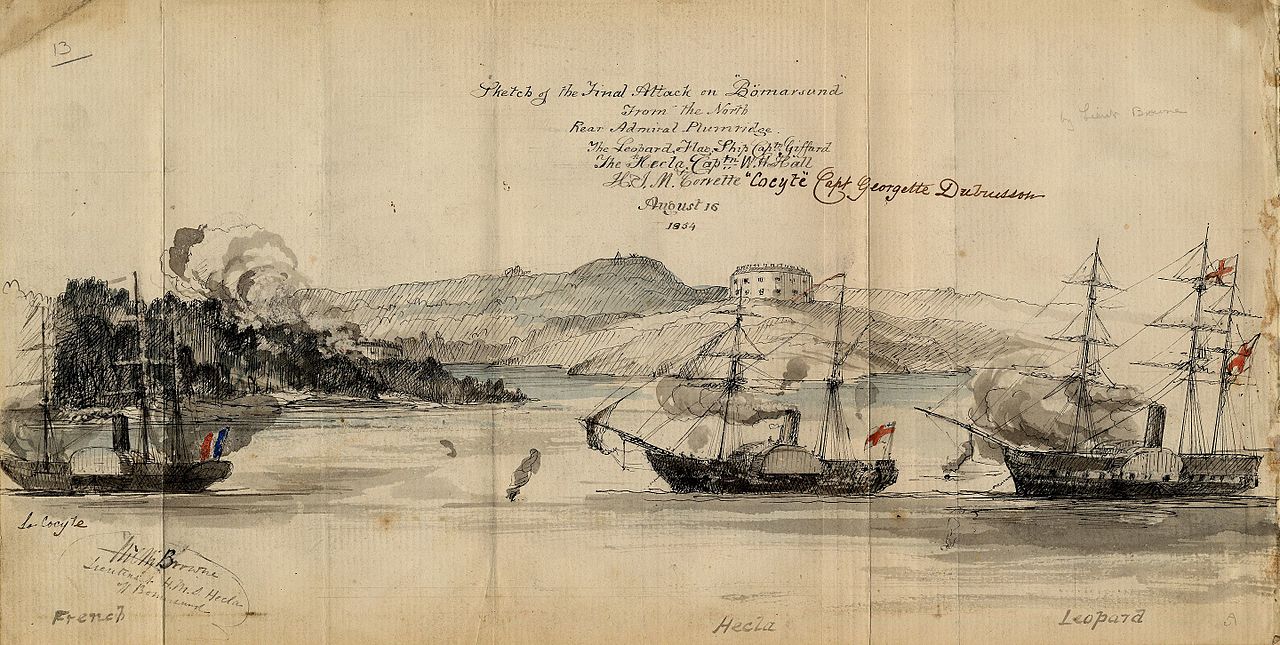 13
Sketch of the Final Attack on "Bömarsund"
From the North
Rear Admiral Plumridge.
The Leopard, Flag Ship Captn Giffard
The Hecla, Captn W. H. Hall
H.I.M. Corvette "Cocyte" Capt Georgette Dubuisson
August 16
1854
by Lieut Browne
Le Cocyte
Browne
Lieutenant H.M.S. Hecla
off Bomarsund
French
Hecla
Leopard